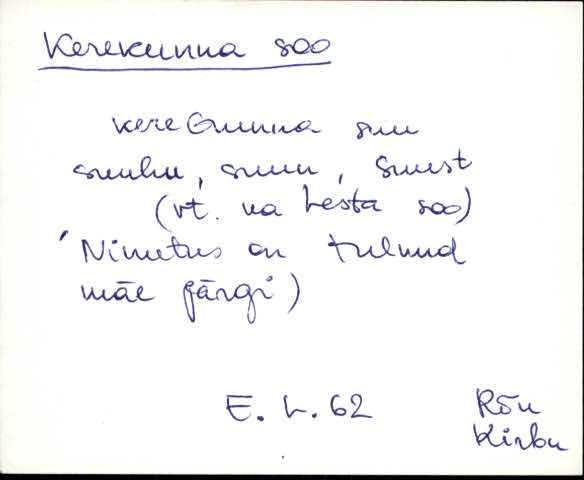 Kerekunna soo
kereGunna suu
suuhu, suun, suust
(vt. ka Lesta soo)
'Nimetus on tulnud
mäe järgi)
E. L. 62
Rõu
Kirbu